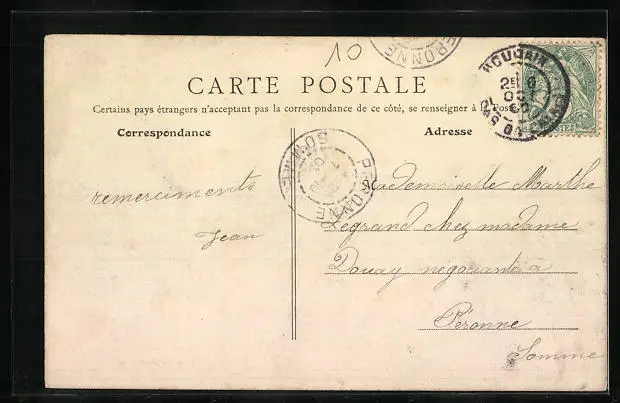 10
PERONNE
CARTE POSTALE
Certains pays étrangers n'acceptant pas la correspondance de ce côté, se renseigner à la Poste
Correspondance
Adresse
ROUBAIX
POSTES
PERONNE
SOMME
remerciments
Jean
Mademoiselle Marthe
Legrand chez madame
Douay négociante à
Péronne
Somme